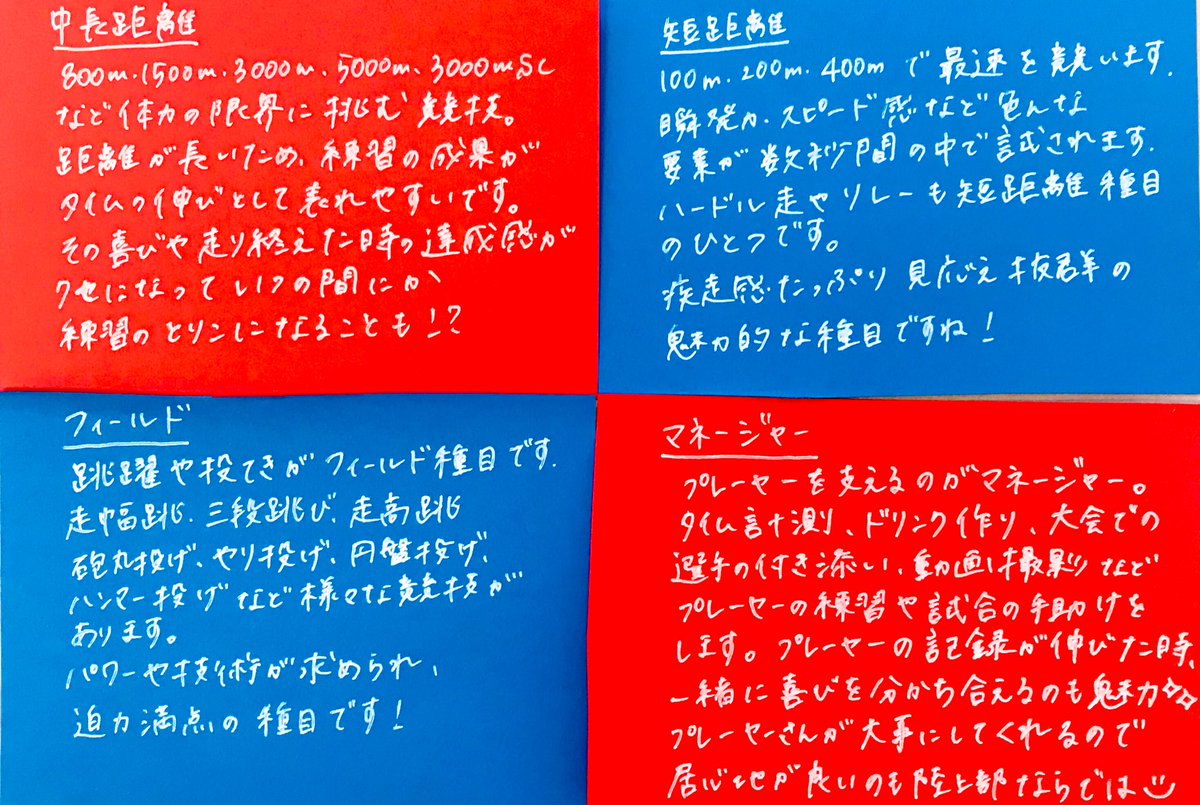 中長距離
800m・1500m・3000m、5000m、3000mSC
など体力の限界に挑む競技。
距離が長いため、練習の成果が
タイムの伸びとして表れやすいです。
その喜びや走り終えた時の達成感が
クセになっていつの間にか、
練習のとりこになることも!?
短距離
100m・200m・400mで最速を競います.
瞬発力・スピード感など色んな
要素が数秒間の中で試されます.
ハードル走やリレーも短距離種目
のひとつです。
疾走感たっぷり見応え抜群の
魅力的な種目ですね!
フィールド
跳躍や投てきがフィールド種目です.
走幅跳、三段跳び、走高跳
砲丸投げ、やり投げ、円盤投げ、
ハンマー投げなど様々な競技が
あります。
パワーや技術が求められ、
迫力満点の種目です!
マネージャー
プレーヤーを支えるのがマネージャー。
タイム計測、ドリンク作り、大会での
選手の付き添い、動画撮影など
プレーヤーの練習や試合の手助けを
します。プレーヤーの記録が伸びた時、
一緒に喜びを分かち合えるのも魅力✧✧
プレーヤーさんが大事にしてくれるので
居心地が良いのも陸上部ならでは